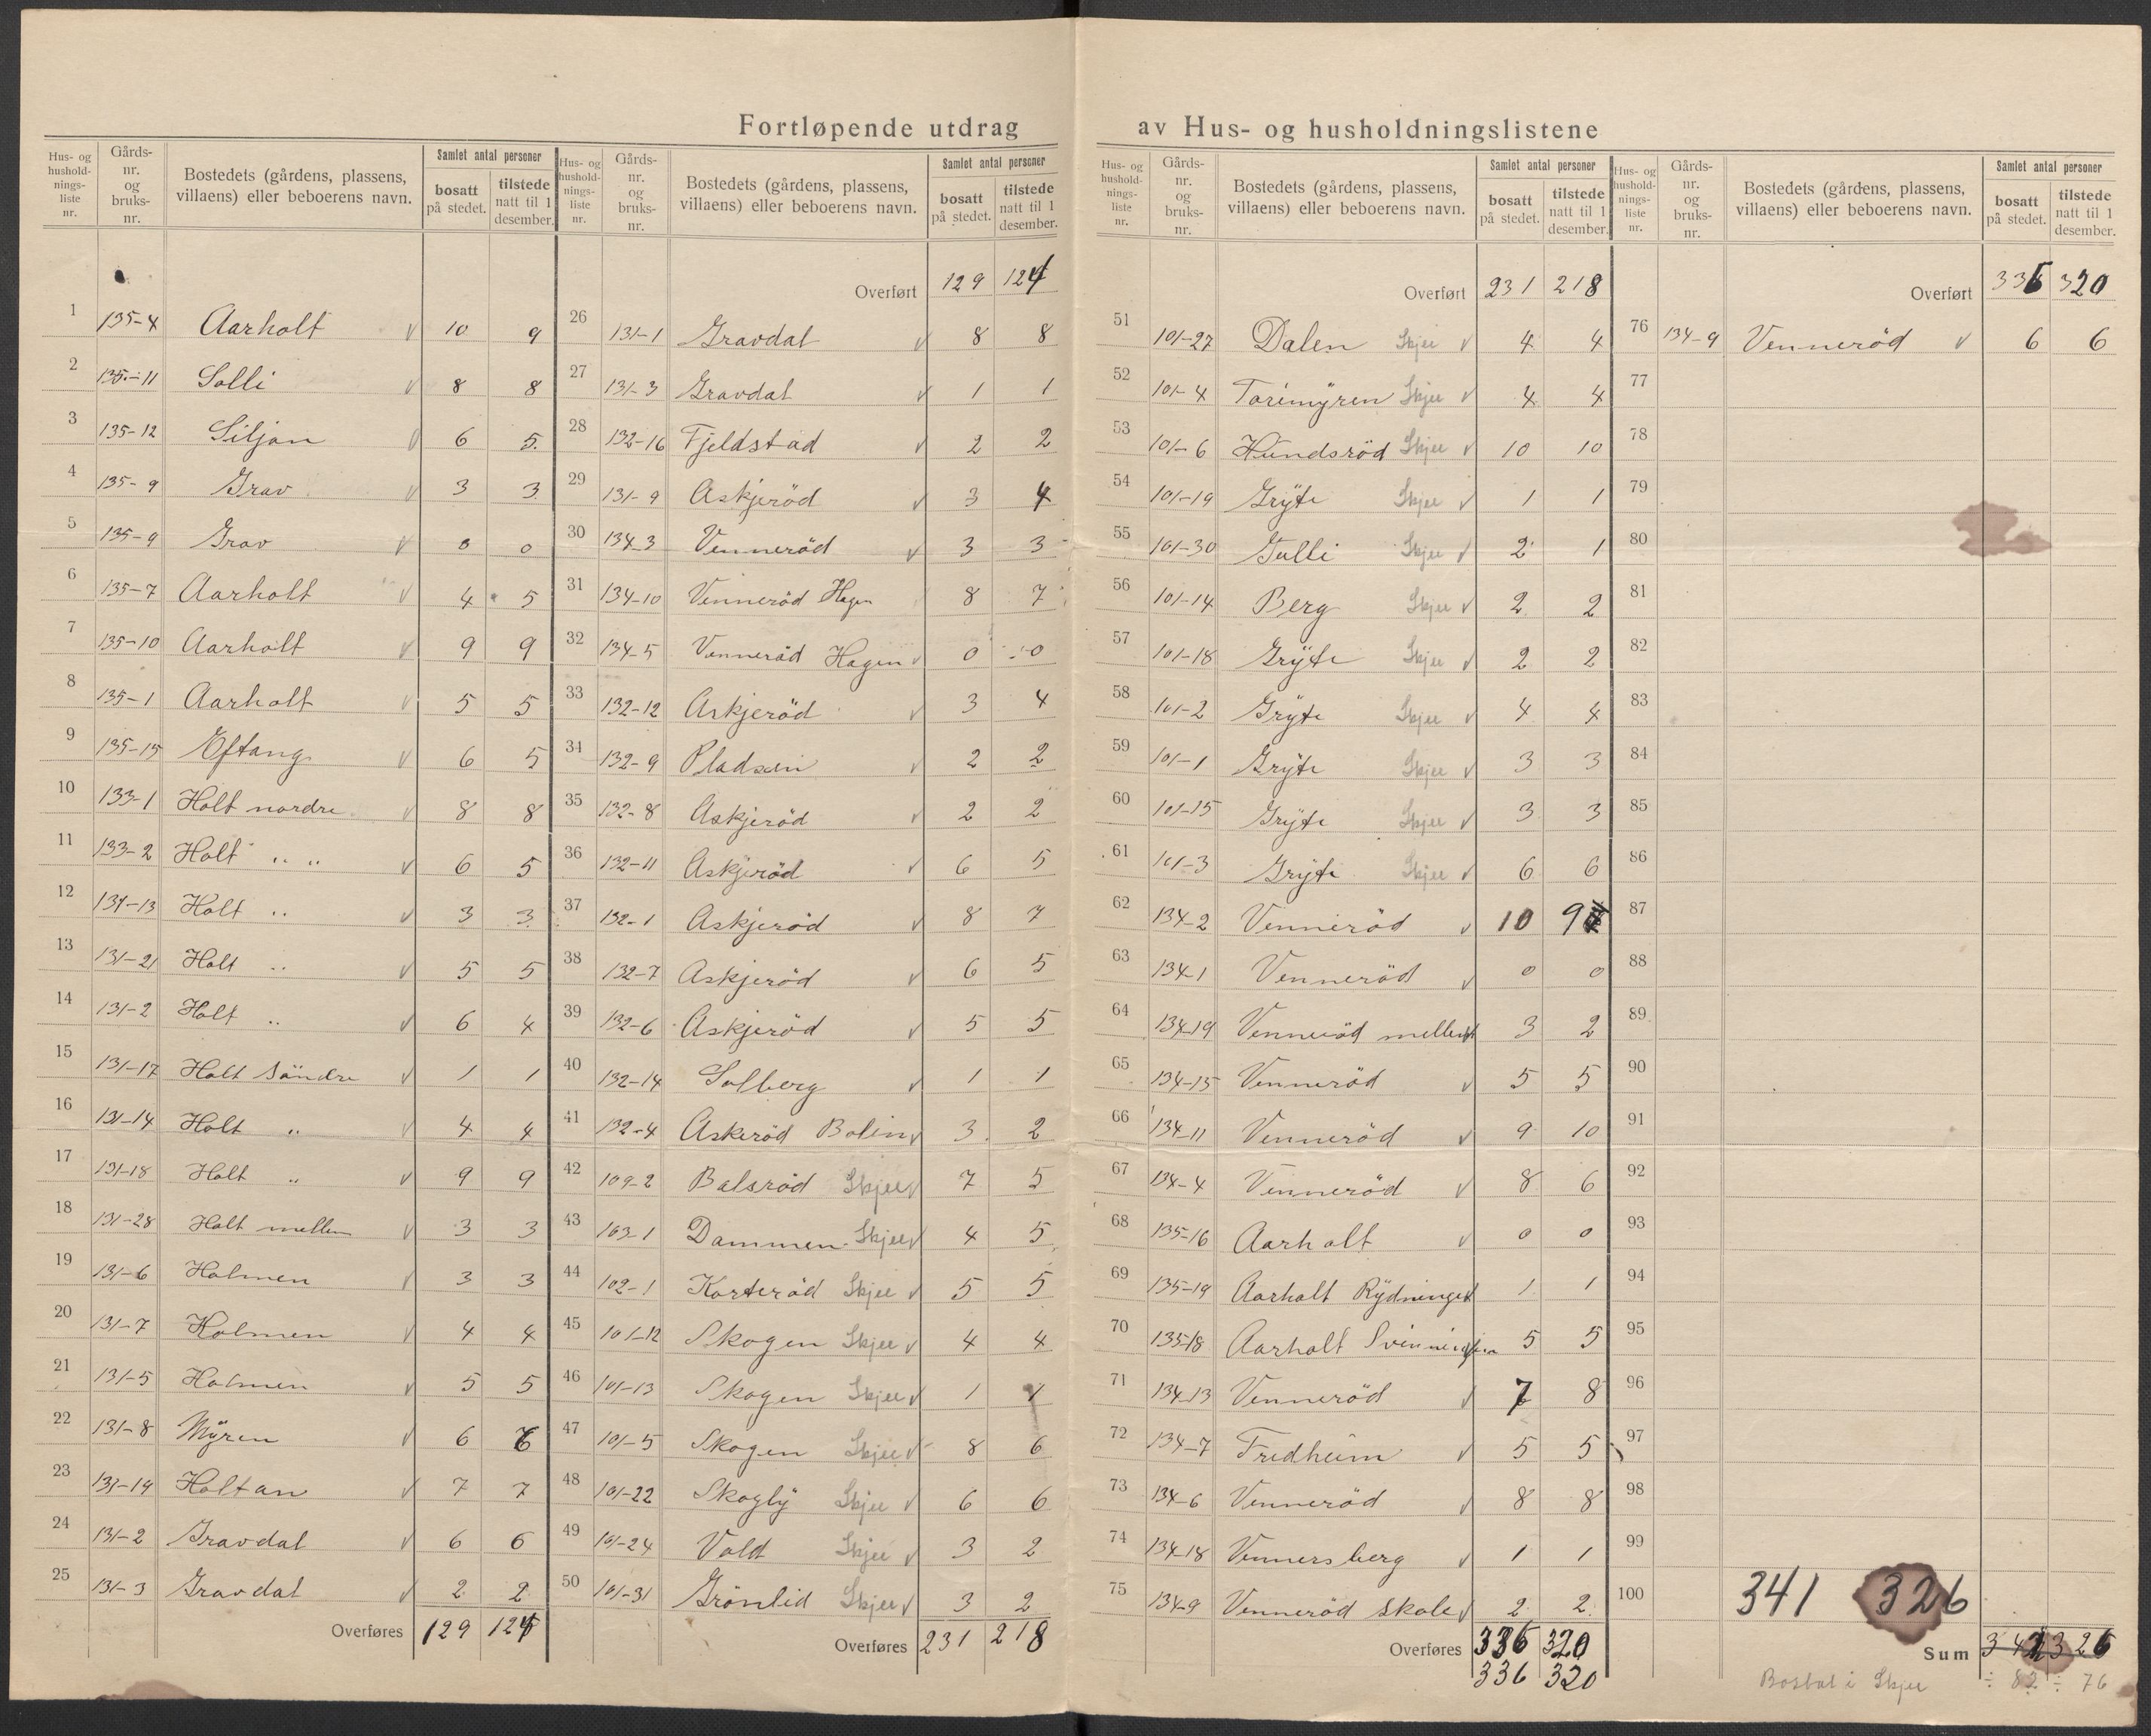 Fortløpende utdrag av Hus- og husholdningslistene
Hus- og hushold-nings-liste nr. | Gårds-nr. og bruks-nr. | Bostedets (gårdens, plassens, villaens) eller beboerens navn. | Samlet antal personer bosatt på stedet. | tilstede natt til 1 desember.
1 135-4 Aarholt v 10 9
2 135-11 Solli v 8 8
3 135-12 Siljan v 6 5
4 135-9 Grav v 3 3
5 135-9 Grav v 0 0
6 135-7 Aarholt v 4 5
7 135-10 Aarholt v 9 9
8 135-1 Aarholt v 5 5
9 135-15 Eftang v 6 5
10 133-1 Holt nordre v 8 8
11 133-2 Holt " " v 6 5
12 131-13 Holt " v 3 3
13 131-21 Holt " v 5 5
14 131-2 Holt " v 6 4
15 131-17 Holt Söndre v 1 1
16 131-14 Holt " v 4 4
17 131-18 Holt " v 9 9
18 131-28 Holt mellem v 3 3
19 131-6 Holmen v 3 3
20 131-7 Holmen v 4 4
21 131-5 Holmen v 5 5
22 131-8 Mÿren v 6 6
23 131-19 Holtan v 7 7
24 131-2 Gravdal v 6 6
25 131-3 Gravdal v 2 2
Overføres 129 124
Hus- og hushold-nings-liste nr. | Gårds-nr. og bruks-nr. | Bostedets (gårdens, plassens, villaens) eller beboerens navn. | Samlet antal personer bosatt på stedet. | tilstede natt til 1 desember.
Overført 129 124
26 131-1 Gravdal v 8 8
27 131-3 Gravdal v 1 1
28 132-16 Fjeldstad v 2 2
29 131-9 Askjeröd v 3 4
30 134-3 Venneröd v 3 3
31 134-10 Venneröd Hagen 8 7
32 134-5 Venneröd Hagen v 0 0
33 132-12 Askjeröd v 3 4
34 132-9 Pladsen v 2 2
35 132-8 Askjeröd v 2 2
36 132-11 Askjeröd v 6 5
37 132-1 Askjeröd v 8 7
38 132-7 Askjeröd v 6 5
39 132-6 Askjeröd v 5 5
40 132-14 Solberg v 1 1
41 132-4 Askeröd Bolin v 3 2
42 109-2 Balsröd Skjee v 7 5
43 103-1 Dammen Skjee v 4 5
44 102-1 Korteröd Skjee v 5 5
45 101-12 Skogen Skjee v 4 4
46 101-13 Skogen Skjee v 1 1
47 101-5 Skogen Skjee v 8 6
48 101-22 Skoglÿ Skjee v 6 6
49 101-24 Vold Skjee v 3 2
50 101-31 Grönlid Skjee v 3 2
Overføres 231 218
Hus- og hushold-nings-liste nr. | Gårds-nr. og bruks-nr. | Bostedets (gårdens, plassens, villaens) eller beboerens navn. | Samlet antal personer bosatt på stedet. | tilstede natt til 1 desember.
Overført 231 218
51 101-27 Dalen Skjee v 4 4
52 101-4 Torimÿren Skjee v 4 4
53 101-6 Hundsröd Skjee v 10 10
54 101-19 Grÿte Skjee v 1 1
55 101-30 Tulli Skjee v 2 1
56 101-14 Berg Skjee v 2 2
57 101-18 Grÿte Skjee v 2 2
58 101-2 Grÿte Skjee v 4 4
59 101-1 Grÿte Skjee v 3 3
60 101-15 Grÿte Skjee v 3 3
61 101-3 Grÿte Skjee v 6 6
62 134-2 Venneröd v 10 9
63 134-1 Venneröd v 0 0
64 134-19 Venneröd mellem 3 2
65 134-15 Venneröd v 5 5
66 134-11 Venneröd v 9 10
67 134-4 Venneröd v 8 6
68 135-16 Aarholt v 0 0
69 135-19 Aarholt Rÿdninget 1 1
70 135-18 Aarholt 5 5
71 134-13 Venneröd v 7 8
72 134-7 Fredheim v 5 5
73 134-6 Venneröd v 8 8
74 134-18 Vennersberg v 1 1
75 134-9 Venneröd skole v 2 2
Overføres 336 320
336 320
Hus- og hushold-nings-liste nr. | Gårds-nr. og bruks-nr. | Bostedets (gårdens, plassens, villaens) eller beboerens navn. | Samlet antal personer bosatt på stedet. | tilstede natt til 1 desember.
Overført 335 320
76 134-9 Venneröd v 6 6
77
78
79
80
81
82
83
84
85
86
87
88
89
90
91
92
93
94
95
96
97
98
99
100 341 326
Sum 342 326
Bosat i Skjee ÷ 82 ÷ 76